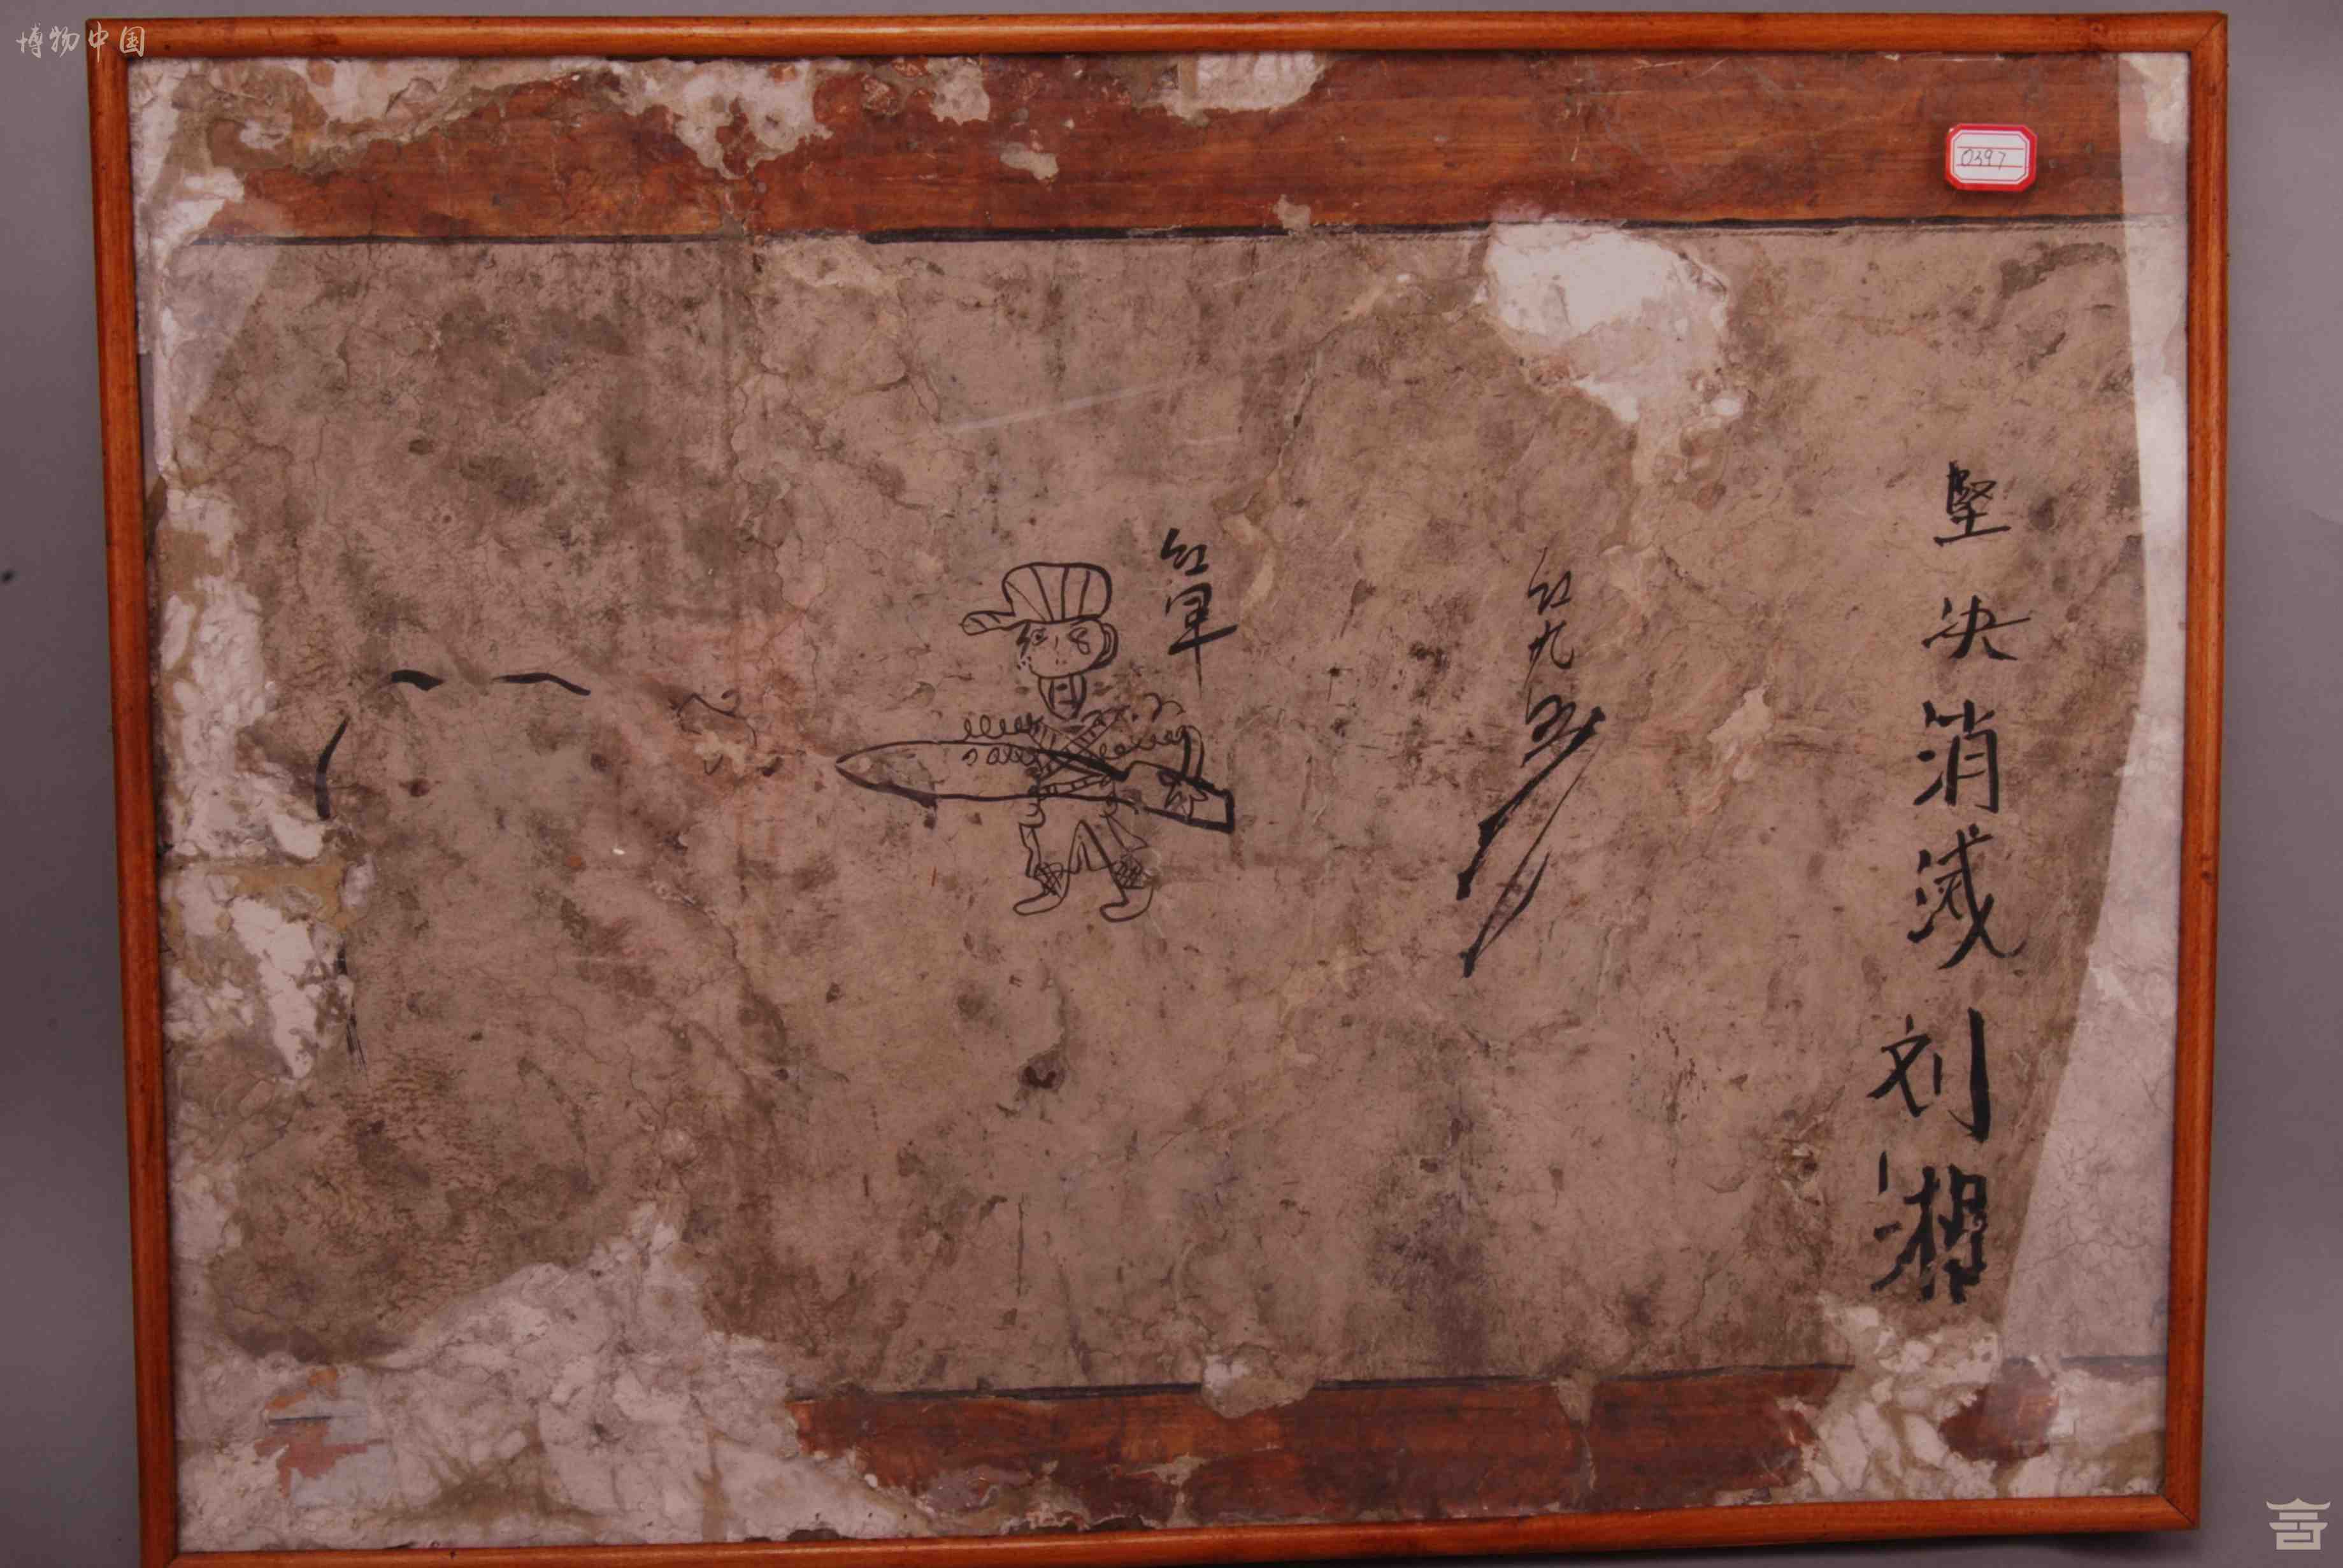 博物中国
0397
坚决消灭刘湘
红九
红军